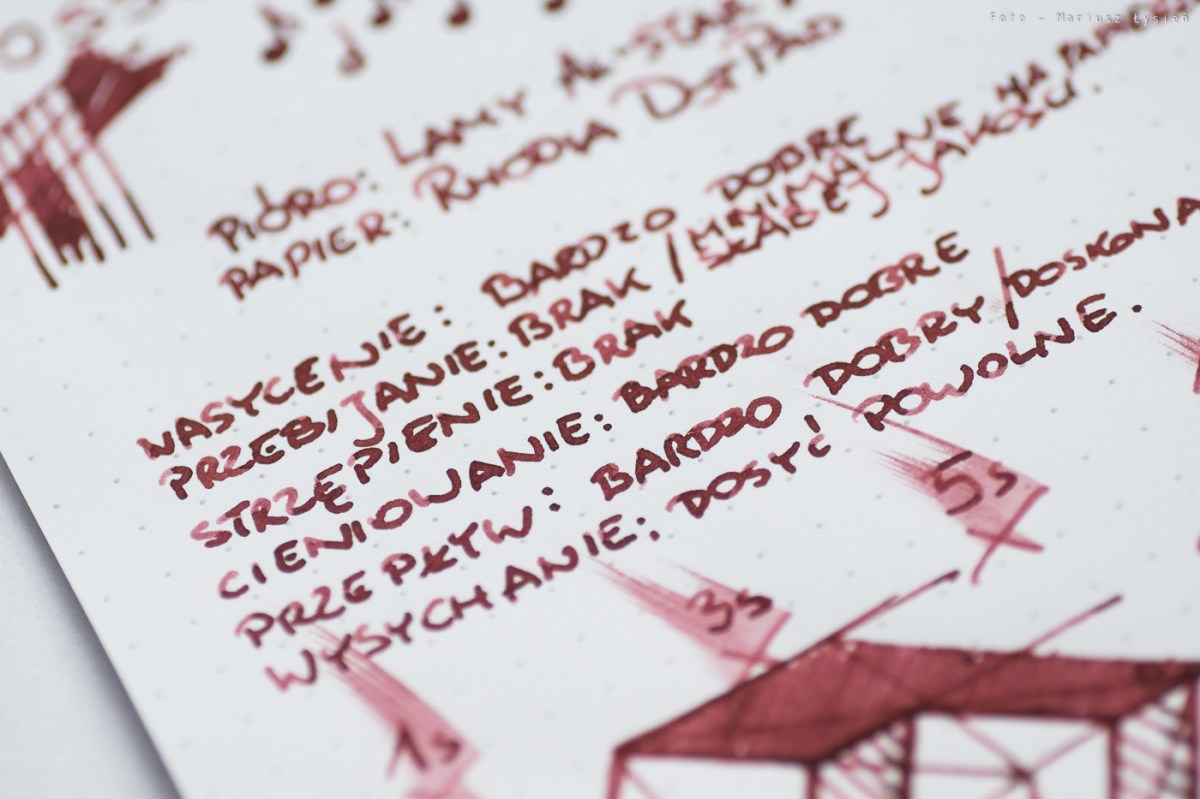 Foto - Mariusz Łysień
PIÓRO: LAMY AL-STAR
PAPIER: RHODIA DOT PAD
NASYCENIE: BARDZO DOBRE
PRZEBIJANIE: BRAK / MINIMALNE NA PAPIERZE
SŁABEJ JAKOŚCI.
STRZĘPIENIE: BRAK
CIENIOWANIE: BARDZO DOBRE
PRZEPŁYW: BARDZO DOBRY / DOSKONA
WYSYCHANIE: DOSYĆ POWOLNE.
5s
3s
1s